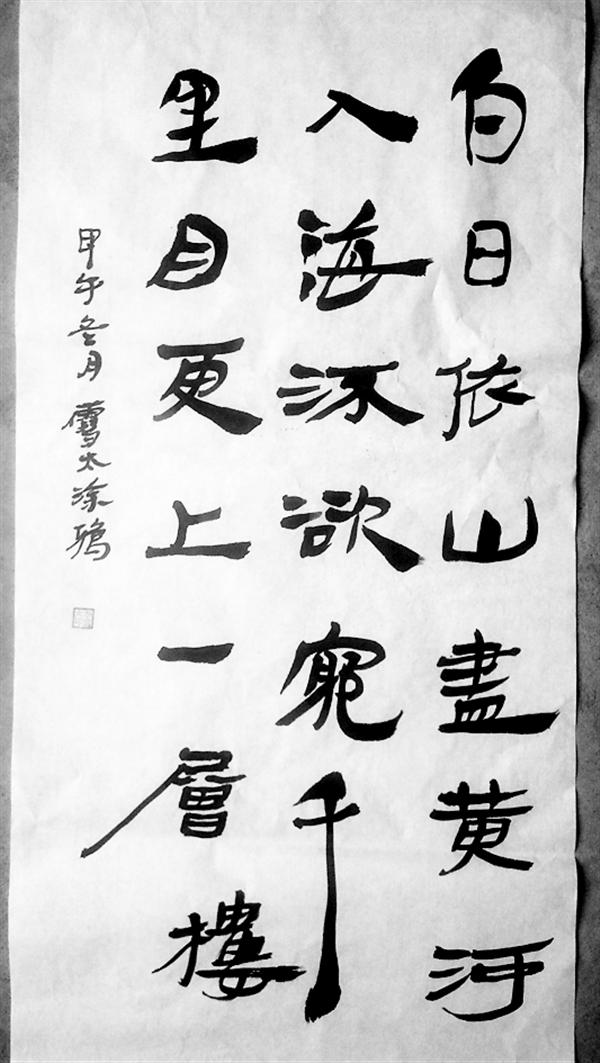 白日依山盡黄河
入海流欲窮千
里目更上一層樓
甲午冬月 太涂鴉